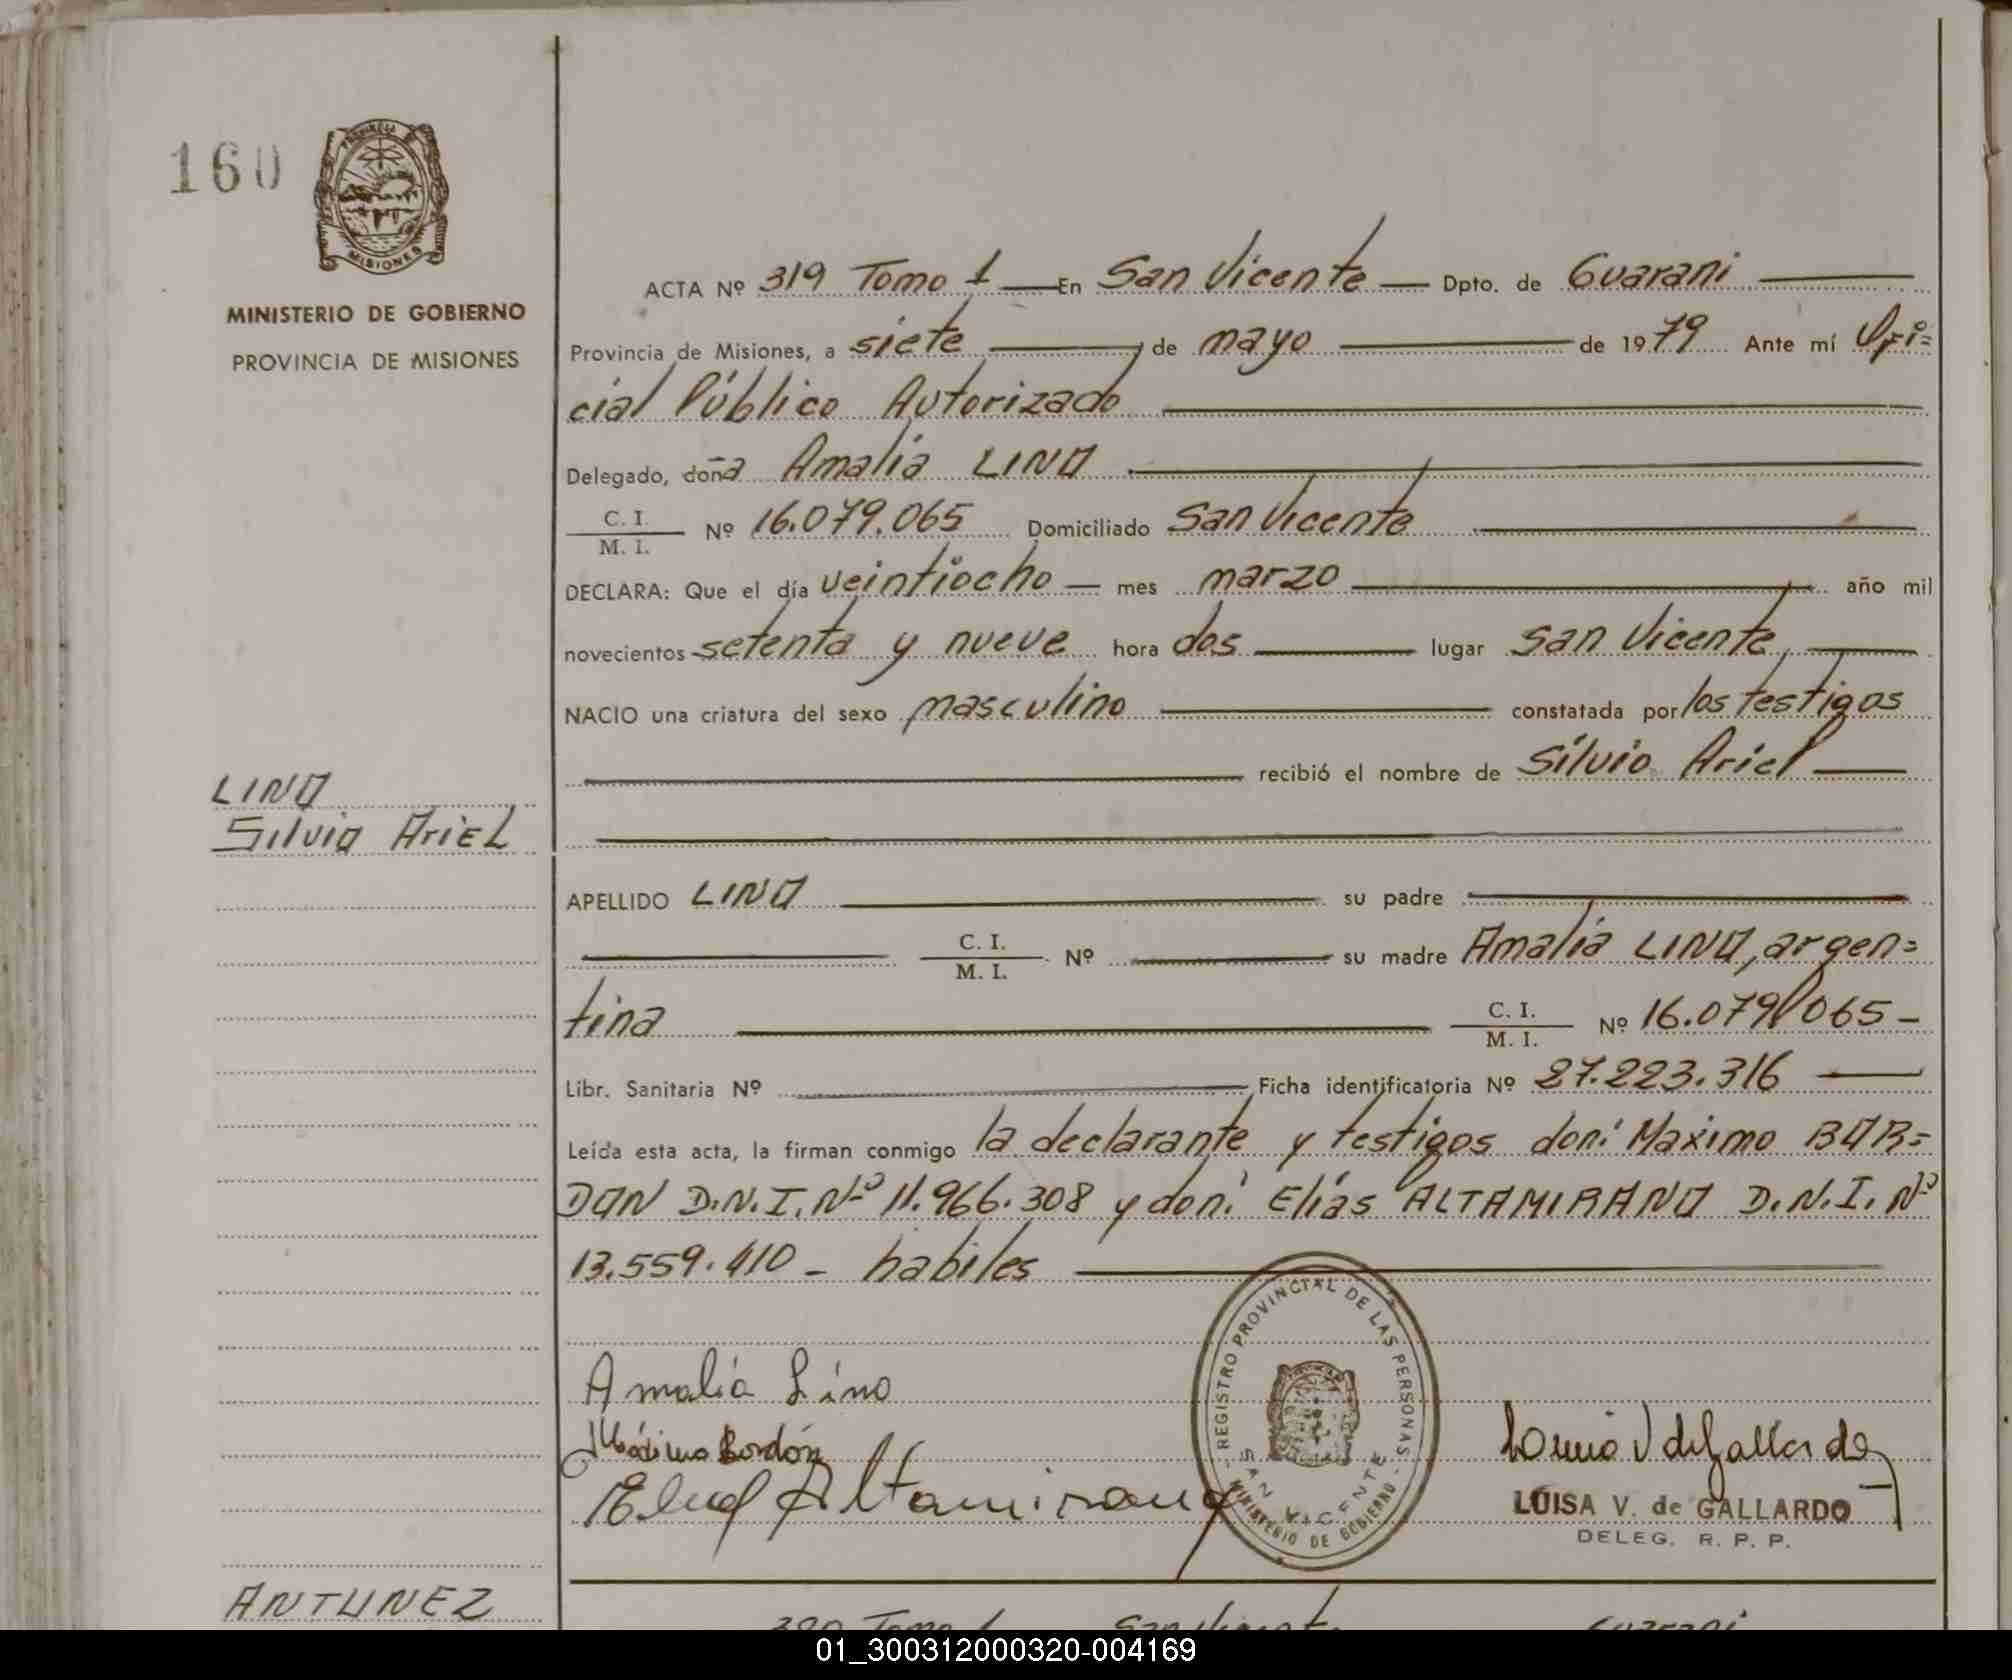 160
PROVINCIA
MISIONES
MINISTERIO DE GOBIERNO
PROVINCIA DE MISIONES
ACTA Nº 319 Tomo 1 — En San Vicente — Dpto. de Guarani —
Provincia de Misiones, a siete — de mayo — de 1979 Ante mí Ofi=
cial Público Autorizado —
Delegado, doña Amalia LINO —
C. I.
M. I. Nº 16.079.065 Domiciliado San Vicente —
DECLARA: Que el día veintiocho — mes marzo — año mil
novecientos setenta y nueve hora dos — lugar San Vicente, —
NACIO una criatura del sexo masculino — constatada por los testigos
— recibió el nombre de Silvio Ariel —
LINO
Silvio ARIEL
APELLIDO LINO — su padre —
— C. I.
M. I. Nº — su madre Amalia LINO, argen=
tina — C. I.
M. I. Nº 16.079.065 —
Libr. Sanitaria Nº — Ficha identificatoria Nº 27.223.316 —
Leída esta acta, la firman conmigo la declarante y testigos don: Maximo BOR=
DON D.N.I. Nº 11.966.308 y don: Elías ALTAMIRANO D.N.I. Nº
13.559.410 - habiles —
REGISTRO PROVINCIAL DE LAS PERSONAS
SAN VICENTE
MINISTERIO DE GOBIERNO
Amalia Lino
Máximo Bordón
Altamirano
LUISA V. de GALLARDO
DELEG. R. P. P.
ANTUNEZ
320 Tomo 1 San Vicente Guarani
01_300312000320-004169